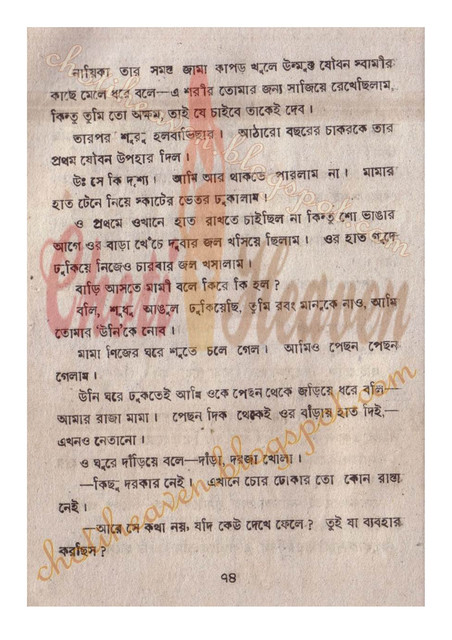 নায়িকা তার সমস্ত জামা কাপড় খুলে উন্মুক্ত যৌবন স্বামীর
কাছে মেলে ধরে বলে—এ শরীর তোমার জন্য সাজিয়ে রেখেছিলাম,
কিন্তু তুমি তো অক্ষম, তাই যে চাইবে তাকেই দেব।
তারপর শুরু হল ব্যাভিচার। আঠারো বছরের চাকরকে তার
প্রথম যৌবন উপহার দিল।
উঃ সে কি দৃশ্য। আমি আর থাকতে পারলাম না। মামার
হাত টেনে নিয়ে স্কার্টের ভেতর ঢুকালাম।
ও প্রথমে ওখানে হাত রাখতে চাইছিল না কিন্তু শো ভাঙার
আগে ওর বাড়া খেঁচে দুবার জল খসিয়ে ছিলাম। ওর হাত গুদে
ঢুকিয়ে নিজেও চারবার জল খসালাম।
বাড়ি আসতে মামী বলে কিরে কি হল?
বলি, শুধু আঙুল ঢুকিয়েছি, তুমি রবং মানুকে নাও, আমি
তোমার 'উনি'কে নোব।
মামা নিজের ঘরে শুতে চলে গেল। আমিও পেছন পেছন
গেলাম।
উনি ঘরে ঢুকতেই আমি ওকে পেছন থেকে জড়িয়ে ধরে বলি—
আমার রাজা মামা। পেছন দিক থেকেই ওর বাঁড়ায় হাত দিই,—
এখনও নেতানো।
ও ঘুরে দাঁড়িয়ে বলে—দাঁড়া, দরজা খোলা।
—কিছু দরকার নেই। এখানে চোর ঢোকার তো কোন রাস্তা
নেই।
—আরে সে কথা নয়, যদি কেউ দেখে ফেলে? তুই যা ব্যবহার
করছিস?
৭৪
Choti Heaven
chotiheaven.blogspot.com
chotiheaven.blogspot.com